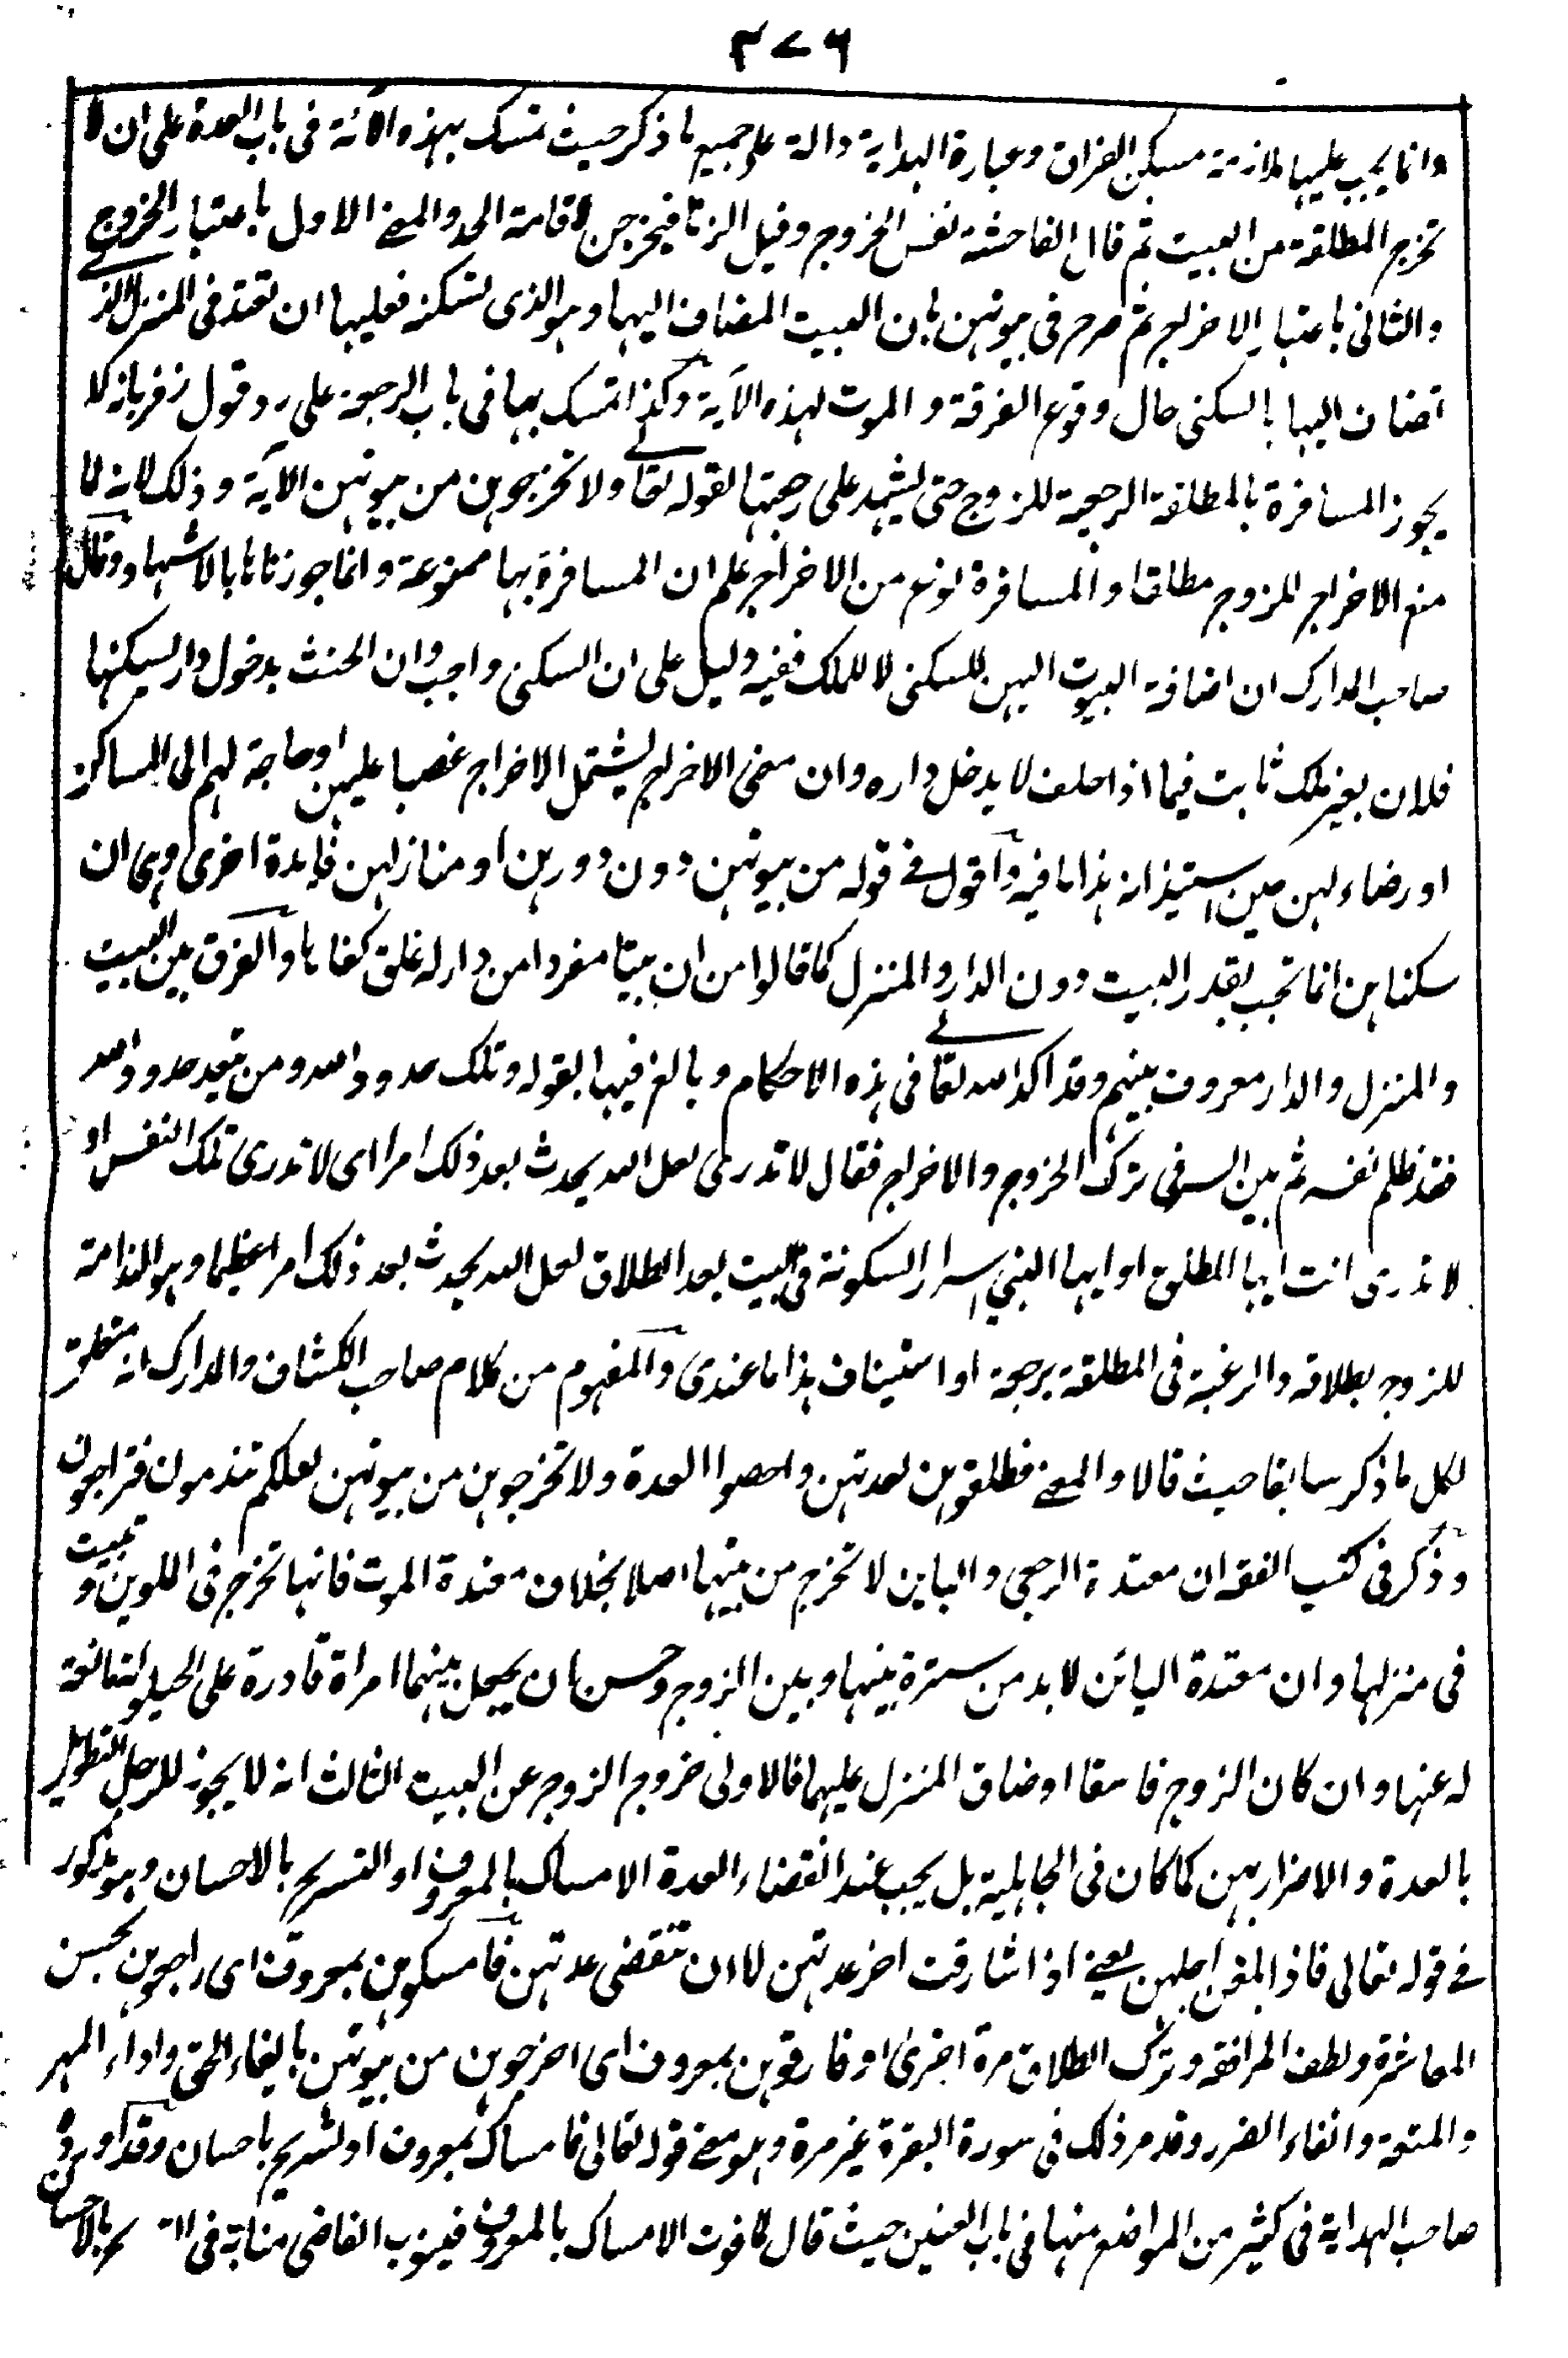 ٣٧٦
وانما يجب عليها ملازمة مسكن الفراق وعبارة الهداية دالة على جميع ما ذكر حيث تمسك بهذه الآية فى باب العدة على ان لا
تخرج المطلقة من البيت ثم قال الفاحشة نفس الخروج وقيل الزنا فيخرجن لاقامة الحد والمعنے الاول باعتبار الخروج
والثانى باعتبار الاخراج ثم صرح فى بيوتهن بان البيت المضاف اليها وهو الذى تسكنه فعليها ان تعتد فى المنزل الذے
تضاف اليها بالسكنى حال وقوع الفرقة والموت لهذه الآية وكذا تمسك بها فى باب الرجعة على رد قول زفر بانه لا
يجوز المسافرة بالمطلقة الرجعية للزوج حتى يشهد على رجعتها لقوله تعالے ولا تخرجوهن من بيوتهن الآية وذلك لانه لما
منع الاخراج للزوج مطلقا والمسافرة نوع من الاخراج علم ان المسافرة بها ممنوعة وانما جوزناها بالاشهاد وقال
صاحب المدارك ان اضافة البيوت اليهن للسكنى لا للملك ففيه دليل على ان السكنى واجب وان الحنث بدخول دار يسكنها
فلان بغير ملك ثابت فيما اذا حلف لا يدخل داره وان معنى الاخراج يشتمل الاخراج غضبا عليهن او حاجة لهم الى المساكن
او رضاء لهن حين استيذانه هذا ما فيه واقول فے قوله من بيوتهن دون دورهن او منازلهن فايدة اخرى وهى ان
سكناهن انما تجب بقدر البيت دون الدار والمنزل كما قالوا من ان بيتا مفردا من دار له غلق كفاها والفرق بين البيت
والمنزل والدار معروف بينهم وقد اكد الله تعالے فى هذه الاحكام وبالغ فيها بقوله وتلك حدود الله ومن يتعد حدود الله
فقد ظلم نفسه ثم بين السر فى ترك الخروج والاخراج فقال لا تدرى لعل الله يحدث بعد ذلك امرا اى لا تدرى تلك النفس او
لا تدرى انت ايها المطلق او ايها النبي اسرار السكونة فى البيت بعد الطلاق لعل الله يحدث بعد ذلك امرا عظيما وهو الندامة
للزوج بطلاقه والرغبة فى المطلقة برجعة او استيناف هذا ما عندى والمفهوم من كلام صاحب الكشاف والمدارك انه متعلق
لكل ما ذكر سابقا حيث قالا والمعنے فطلقوهن لعدتهن واحصوا العدة ولا تخرجوهن من بيوتهن لعلكم تندمون فتراجعون
وذكر فى كتب الفقه ان معتدة الرجعى والباين لا تخرج من بيتها اصلا بخلاف معتدة الموت فانها تخرج فى الملوين وتبيت
فى منزلها وان معتدة البائن لا بد من سترة بينها وبين الزوج وحسن ان يجعل بينهما امرأة قادرة على الحيلولة مانعة
له عنها وان كان الزوج فاسقا او ضاق المنزل عليهما فالاولى خروج الزوج عن البيت الثالث انه لا يجوز للرجل التطويل
بالعدة والاضرار بهن كما كان فى الجاهلية بل يجب عند انقضاء العدة الامساك بالمعروف او التسريح بالاحسان وهو مذكور
فے قوله تعالى فاذا بلغن اجلهن يعنے اذا شارفت اخر عدتهن لا ان تنقضى عدتهن فامسكوهن بمعروف اى راجعوهن بحسن
المعاشرة ولطف المرافقة وترك الطلاق مرة اخرى او فارقوهن بمعروف اى اخرجوهن من بيوتهن بايفاء الحق واداء المهر
والمتعة واتقاء الضرر وقد مر ذلك فى سورة البقرة غير مرة وهو معنے قوله تعالى فامساك بمعروف او تسريح باحسان وقد اورده
صاحب الهداية فى كثير من المواضع منها فى باب العنين حيث قال لما فوت الامساك بالمعروف فينوب القاضى منابه فى بالاحسان